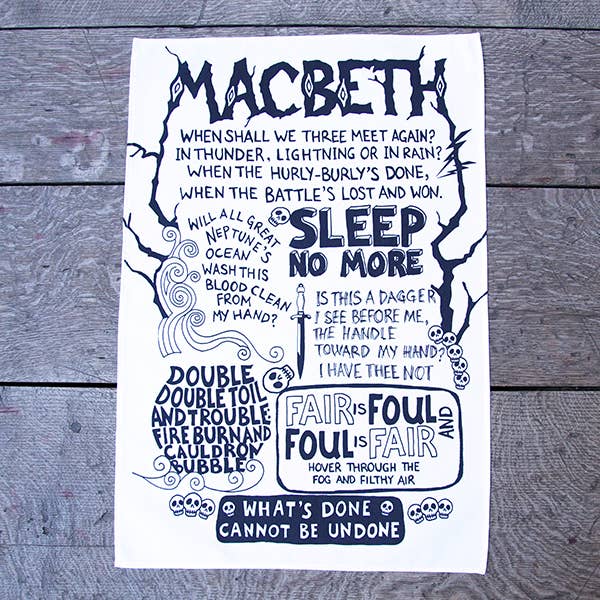 MACBETH
WHEN SHALL WE THREE MEET AGAIN?
IN THUNDER, LIGHTNING OR IN RAIN?
WHEN THE HURLY-BURLY'S DONE,
WHEN THE BATTLE'S LOST AND WON.
WILL ALL GREAT
NEPTUNE'S
OCEAN
WASH THIS
BLOOD CLEAN
FROM
MY HAND?
SLEEP
NO MORE
IS THIS A DAGGER
I SEE BEFORE ME,
THE HANDLE
TOWARD MY HAND?
I HAVE THEE NOT
DOUBLE
DOUBLE TOIL
AND TROUBLE:
FIRE BURN AND
CAULDRON
BUBBLE
FAIR IS FOUL AND
FOUL IS FAIR
HOVER THROUGH THE
FOG AND FILTHY AIR
WHAT'S DONE
CANNOT BE UNDONE